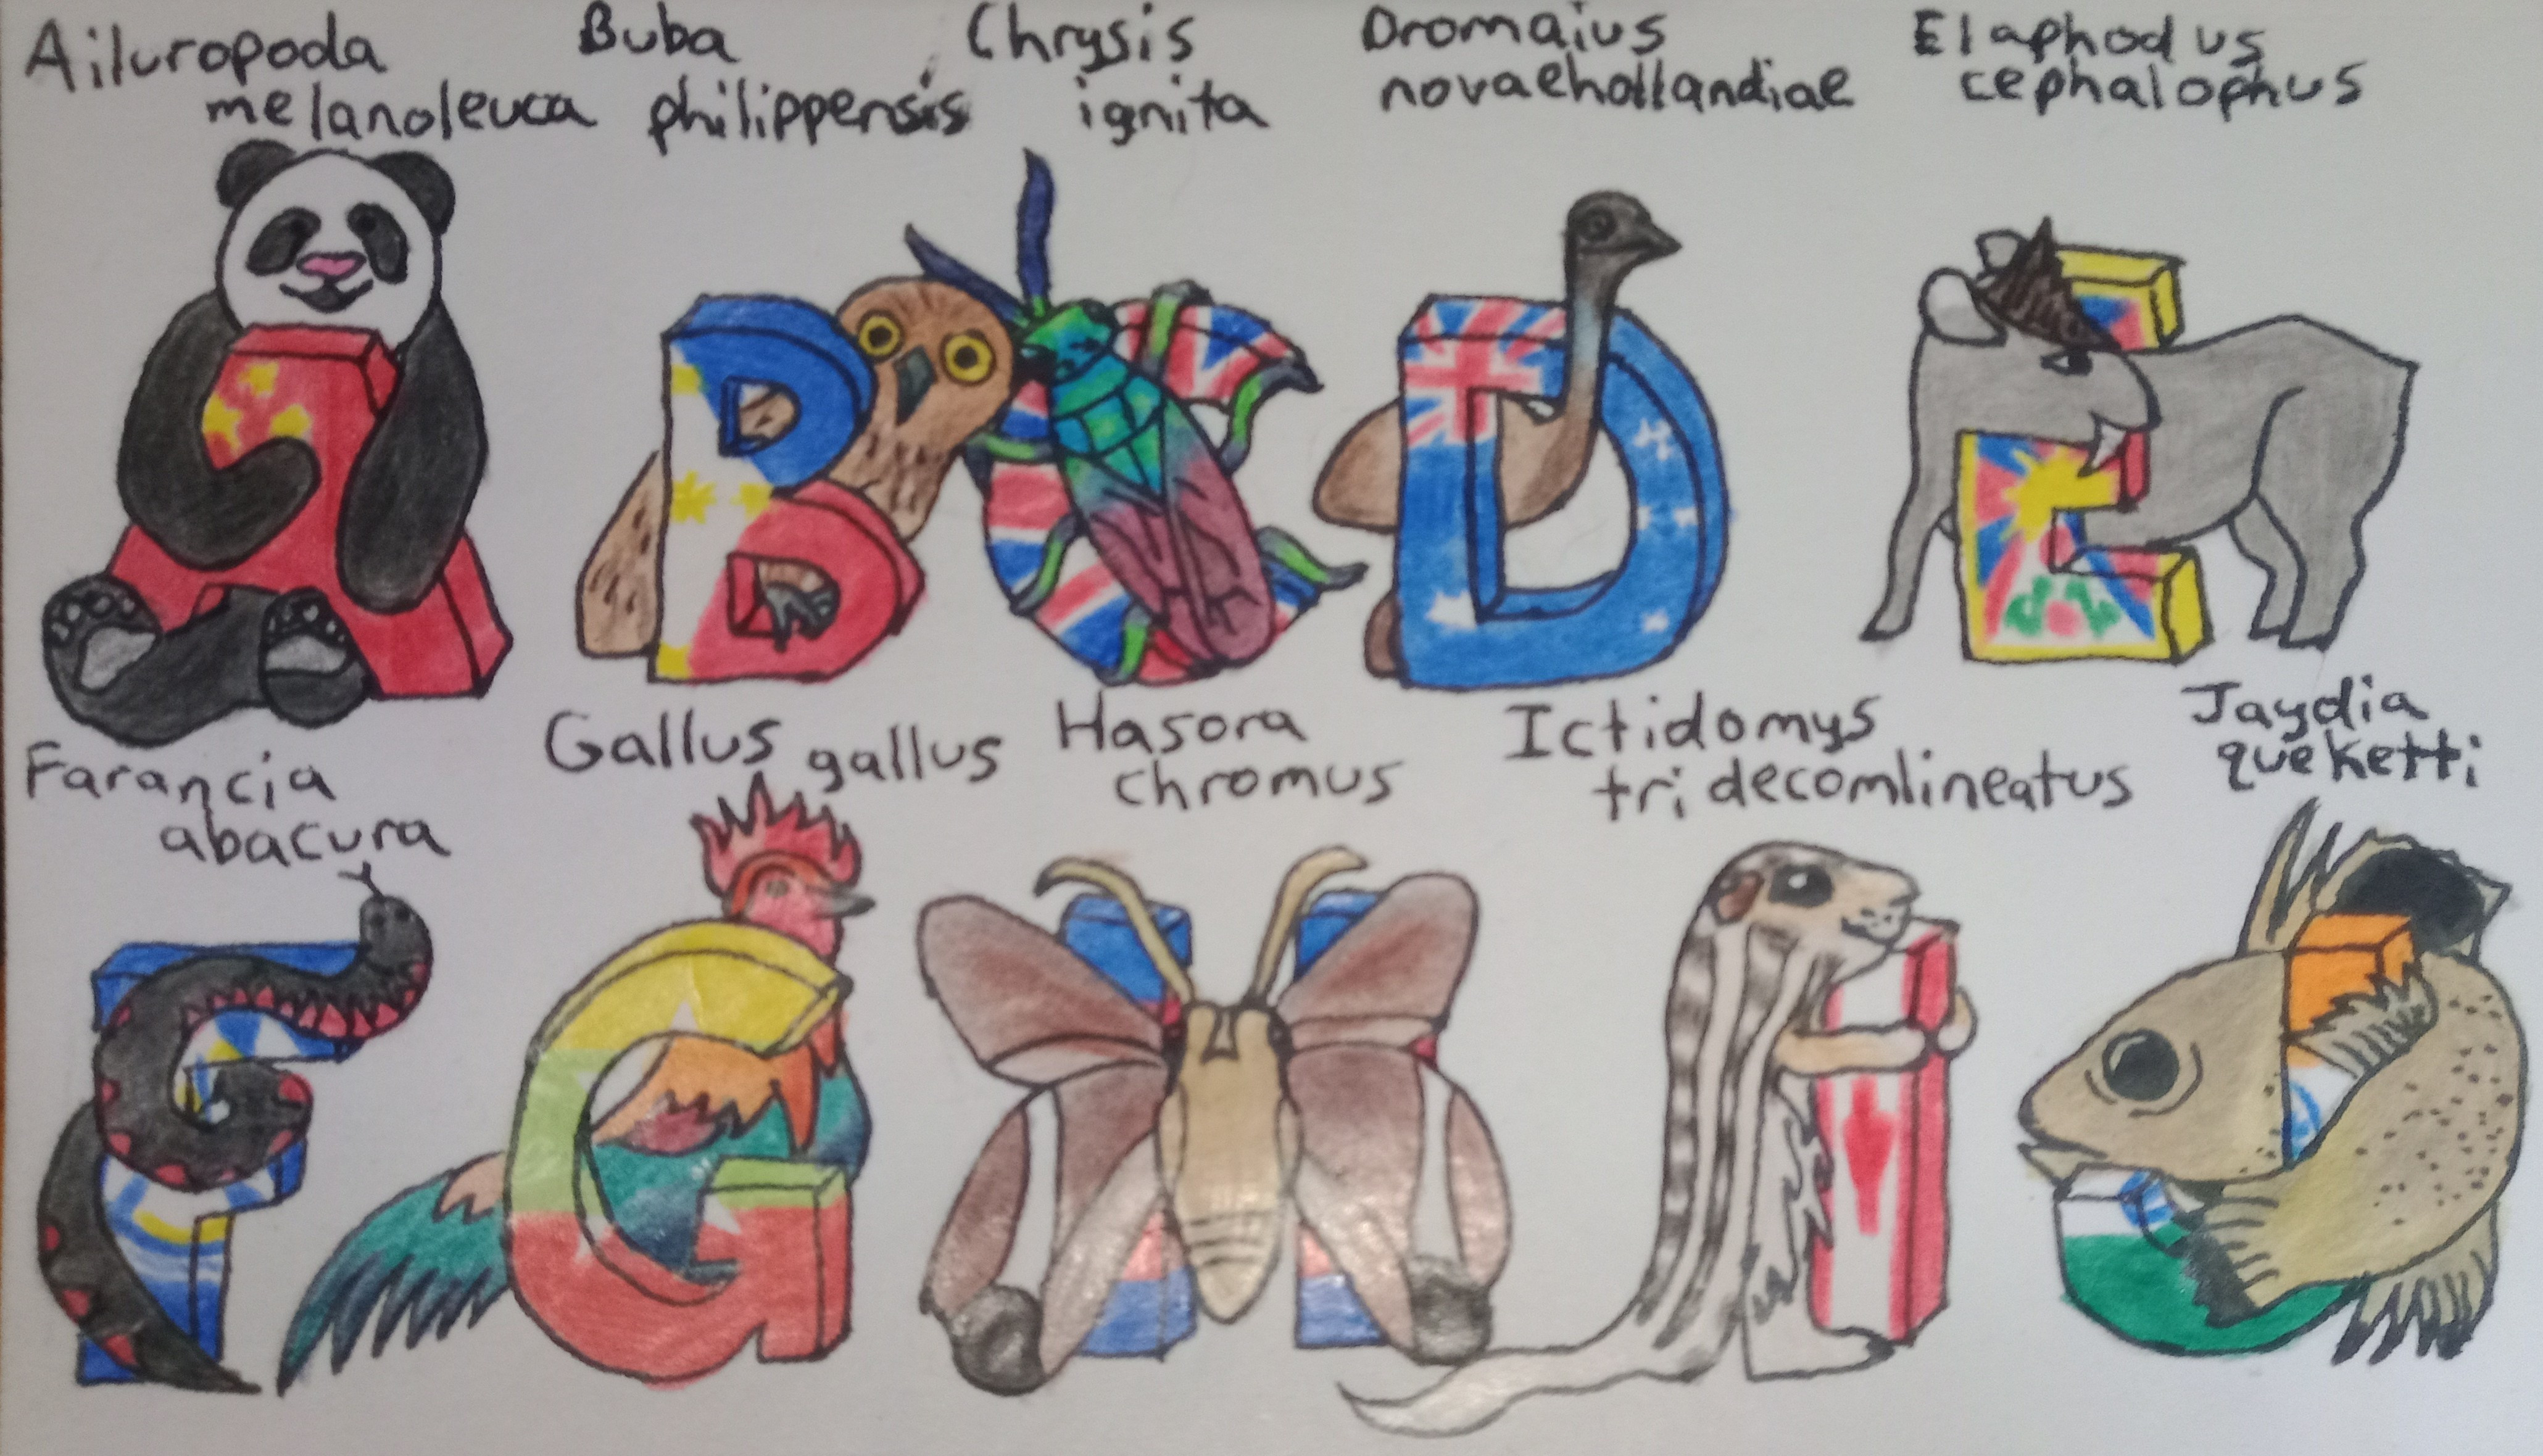 Ailuropoda
melanoleuca
Buba
philippensis
Chrysis
ignita
Dromaius
novaehollandiae
Elaphodus
cephalophus
Farancia
abacura
Gallus gallus
Hasora
chromus
Ictidomys
tridecomlineatus
Jaydia
queketti